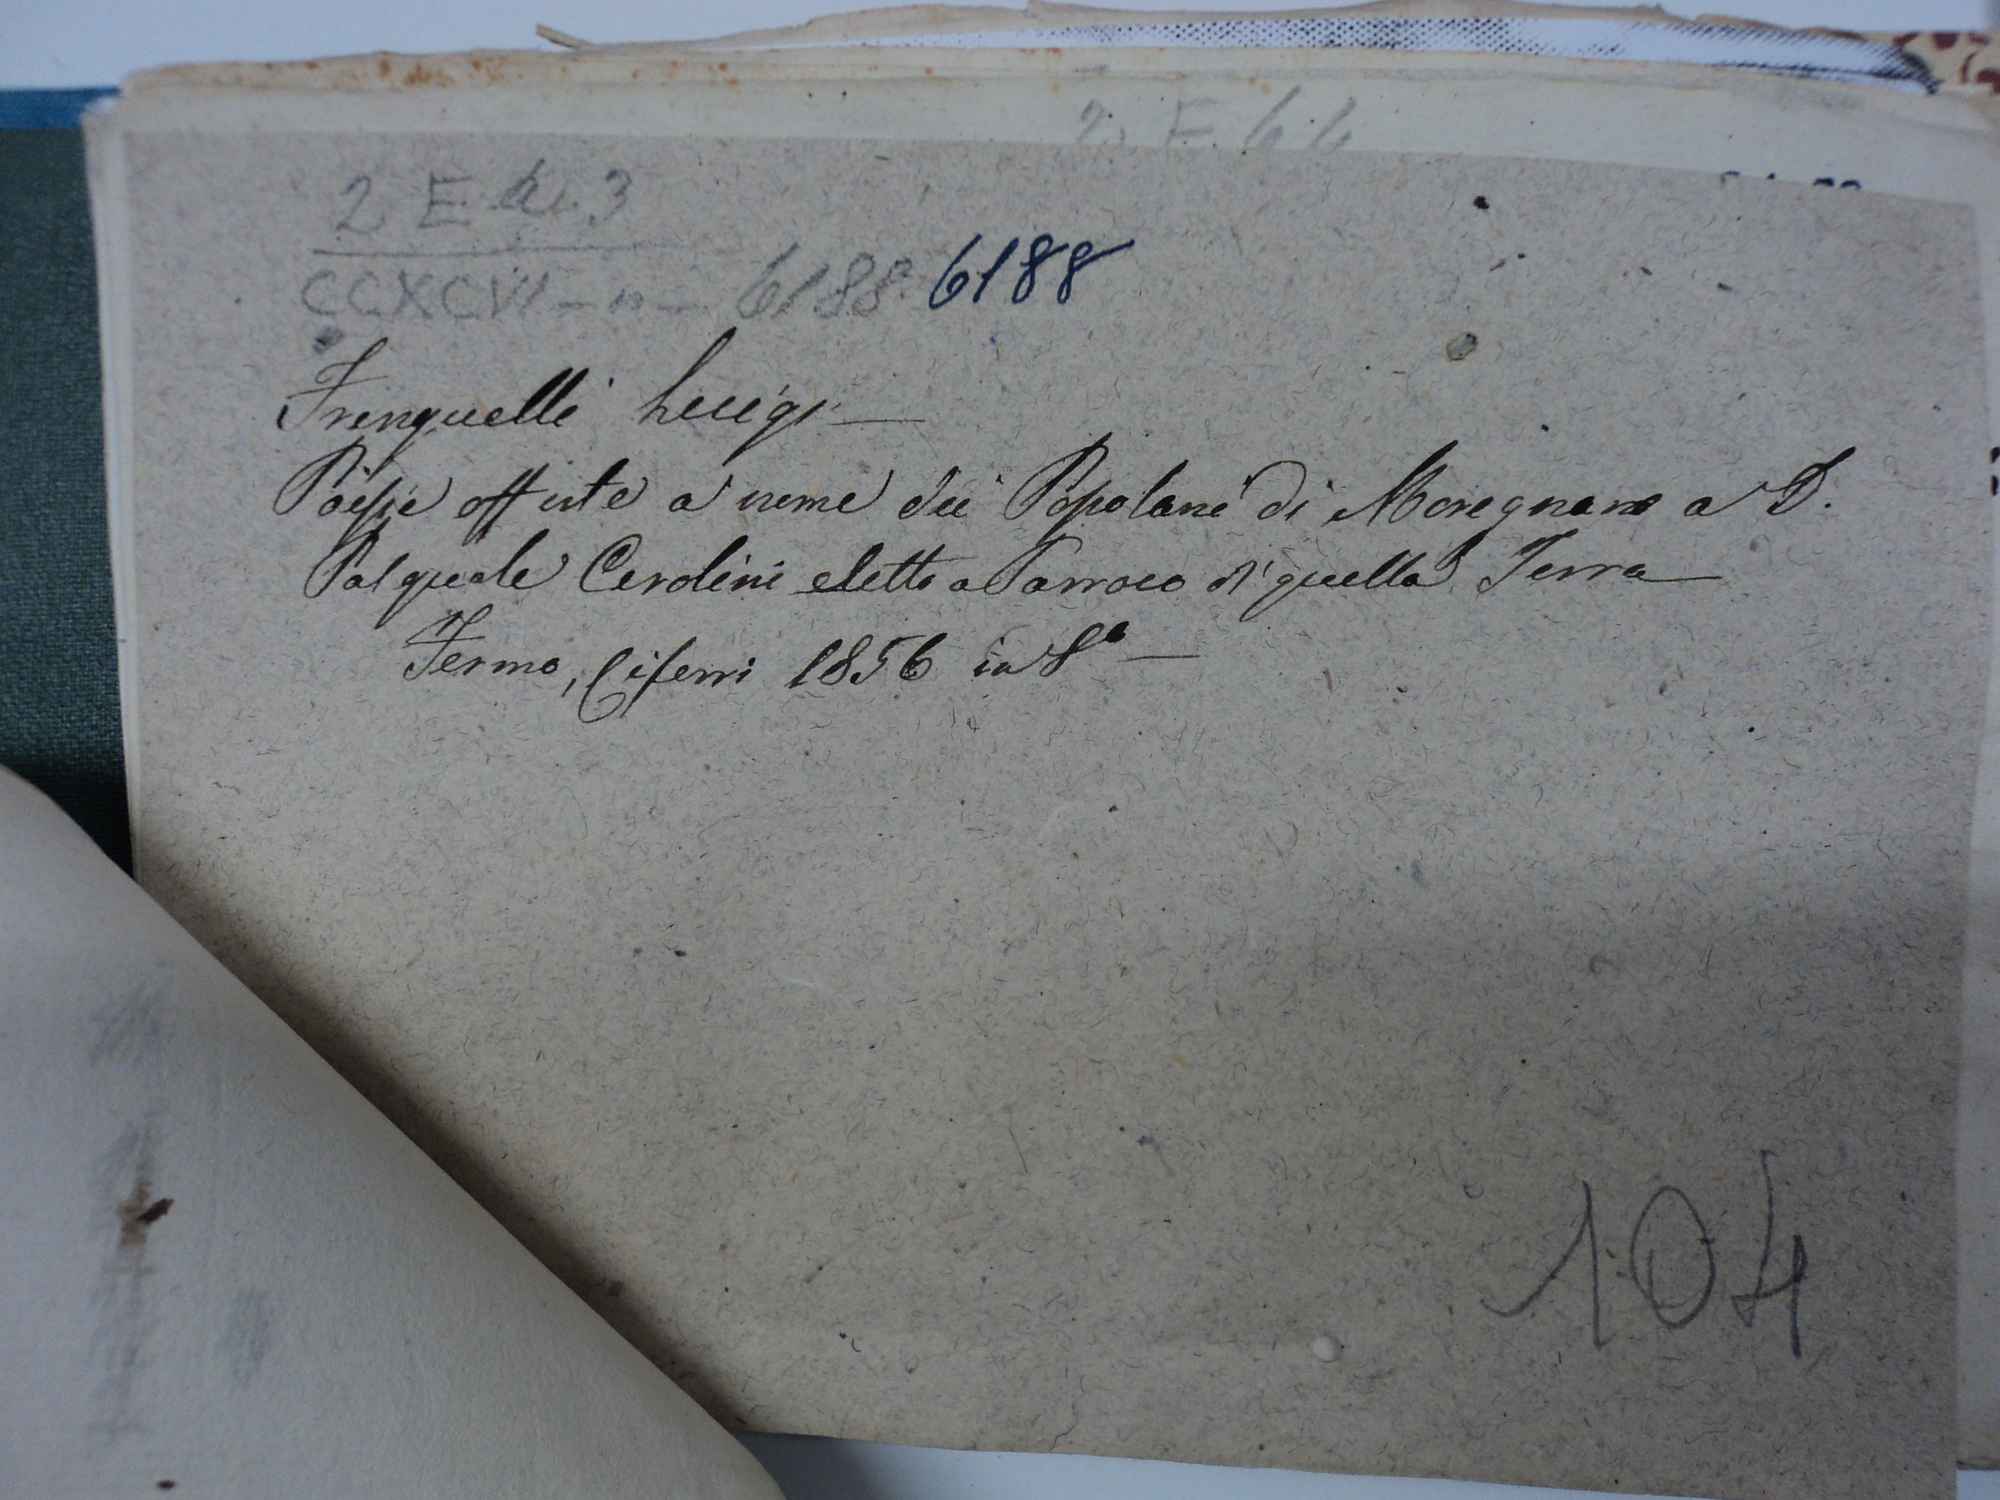 2. E. 4. 6
2 E. 4. 3
CCXCVI - n - 6188 6188
Frenguelli Luigi —
Poesie offerte a nome dei Popolani di Moregnano a D.
Pasquale Cerolini eletto a Parroco di quella Terra —
Fermo, Ciferri 1856 in 8° —
104